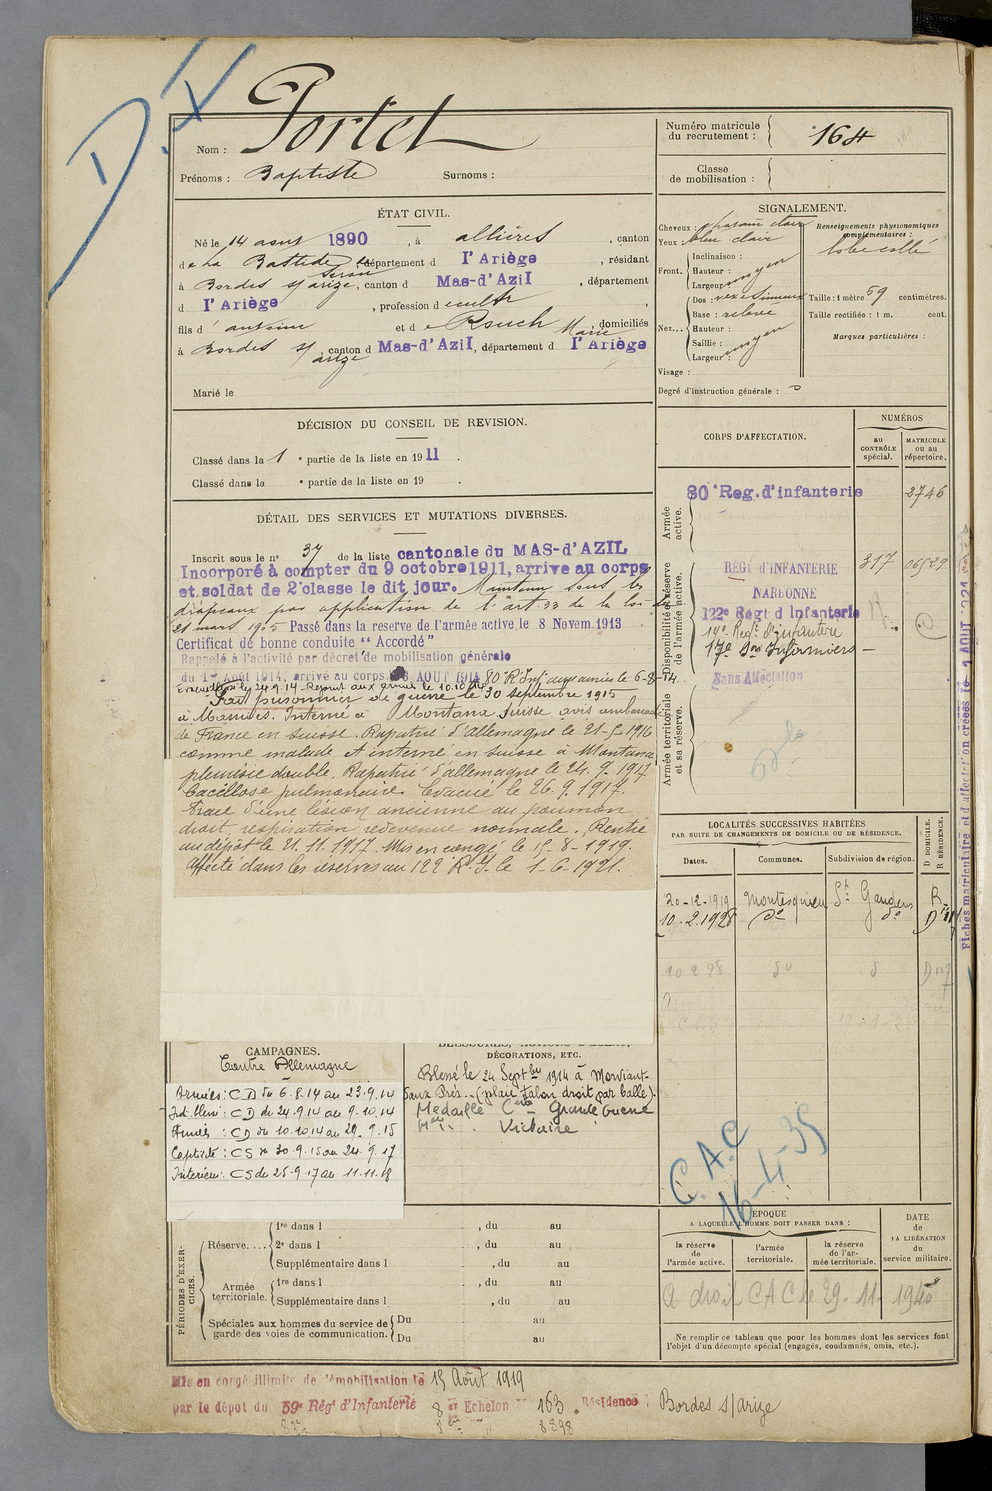 D.X
Nom : Portet
Prénoms : Baptiste Surnoms :
Numéro matricule du recrutement : 164
Classe de mobilisation :
ÉTAT CIVIL.
Né le 14 aout 1890, à allières, canton
de La Bastide de Serou, département d l'Ariège, résidant
à Bordes s/arize, canton d Mas-d'Azil, département
d l'Ariège, profession d cultr
fils d' antoine et de Rouch Marie, domiciliés
à Bordes s/arize, canton d Mas-d'Azil, département d l'Ariège
Marié le
SIGNALEMENT.
Cheveux : chatain clair
Yeux : bleu clair
Front. Inclinaison : moyen
Hauteur :
Largeur :
Nez... Dos : vexe sinueux
Base : relevé
Hauteur : moyen
Saillie :
Largeur :
Visage :
Renseignements physionomiques complémentaires :
lobe collé
Taille : 1 mètre 69 centimètres.
Taille rectifiée : 1 m. cent.
Marques particulières :
Degré d'instruction générale :
DÉCISION DU CONSEIL DE REVISION.
Classé dans la 1e partie de la liste en 1911.
Classé dans la e partie de la liste en 19 .
DÉTAIL DES SERVICES ET MUTATIONS DIVERSES.
Inscrit sous le no 37 de la liste cantonale du MAS-d'AZIL
Incorporé à compter du 9 octobre 1911, arrive au corps
et soldat de 2e classe le dit jour. Maintenu sous les
drapeaux par application de l'art 33 de la loi du
21 mars 1905 Passé dans la reserve de l'armée active, le 8 Novem. 1913
Certificat de bonne conduite "Accordé"
Rappelé à l'activité par décret de mobilisation générale
du 1er Août 1914, arrivé au corps 3 AOUT 1914 80e R Inf aux armées le 6-8-14
Evacué le 24.9.14. Repart aux armées le 10.10.14
Fait prisonnier de guerre le 30 septembre 1915
à Massiges. Interné à Montana Suisse avis ambassade
de France en Suisse. Rapatrié d'allemagne le 21-5-1916
comme malade et interné en Suisse à Montana
pleurésie double. Rapatrié d'allemagne le 24.9.1917
bacillose pulmonaire. Evacué le 26.9.1917.
Trace d'une lésion ancienne au poumon
droit, respiration redevenue normale. Rentré
au dépôt le 21.11.1917. Mis en congé le 15-8-1919.
Affecté dans les réserves au 122 R.I. le 1-6-1921.
CORPS D'AFFECTATION.
NUMÉROS
au contrôle spécial.
matricule ou au répertoire.
Armée active.
80e Reg. d'infanterie 2746
Disponibilité et réserve de l'armée active.
REGt d'INFANTERIE 317
NARBONNE
122e Régt d'Infanterie
14e Regt d'Infanterie
17e Son Infirmiers
Armée territoriale et sa réserve.
Sans Affectation
LOCALITÉS SUCCESSIVES HABITÉES
PAR SUITE DE CHANGEMENTS DE DOMICILE OU DE RÉSIDENCE.
Dates. Communes. Subdivision de région. D DOMICILE. R RÉSIDENCE.
20-12-1919 Montesquieu St Gaudens R
10.2.1928 do do D
CAMPAGNES.
Contre Allemagne
Armées : CD du 6.8.14 au 23.9.14
Int. blessé : CD du 24.9.14 au 9.10.14
Armées : CD du 10.10.14 au 29.9.15
Captivité : CS du 30.9.15 au 24.9.17
Intérieur : CS du 25.9.17 au 11.11.18
BLESSURES, ACTIONS D'ÉCLAT,
DÉCORATIONS, ETC.
Blessé le 24 Septbre 1914 à
(plaie talon droit par balle).
Médaille Cve Grande Guerre
Victoire
C.A.C
16-4-35
PÉRIODES D'EXERCICES.
Réserve.... 1re dans l , du au
2e dans l , du au
Supplémentaire dans l , du au
Armée territoriale. 1re dans l , du au
Supplémentaire dans l , du au
Spéciales aux hommes du service de garde des voies de communication. Du au
Du au
ÉPOQUE
A LAQUELLE L'HOMME DOIT PASSER DANS :
la réserve de l'armée active.
l'armée territoriale.
la réserve de l'armée territoriale.
DATE de LA LIBÉRATION du service militaire.
A droit CAC le 29.11.1940
Ne remplir ce tableau que pour les hommes dont les services font l'objet d'un décompte spécial (engagés, condamnés, omis, etc.).
Mis en congé illimité de démobilisation le 15 Août 1919
par le dépôt du 59e Régt d'Infanterie 8e Echelon no 163. Résidence : Bordes s/arize
8898